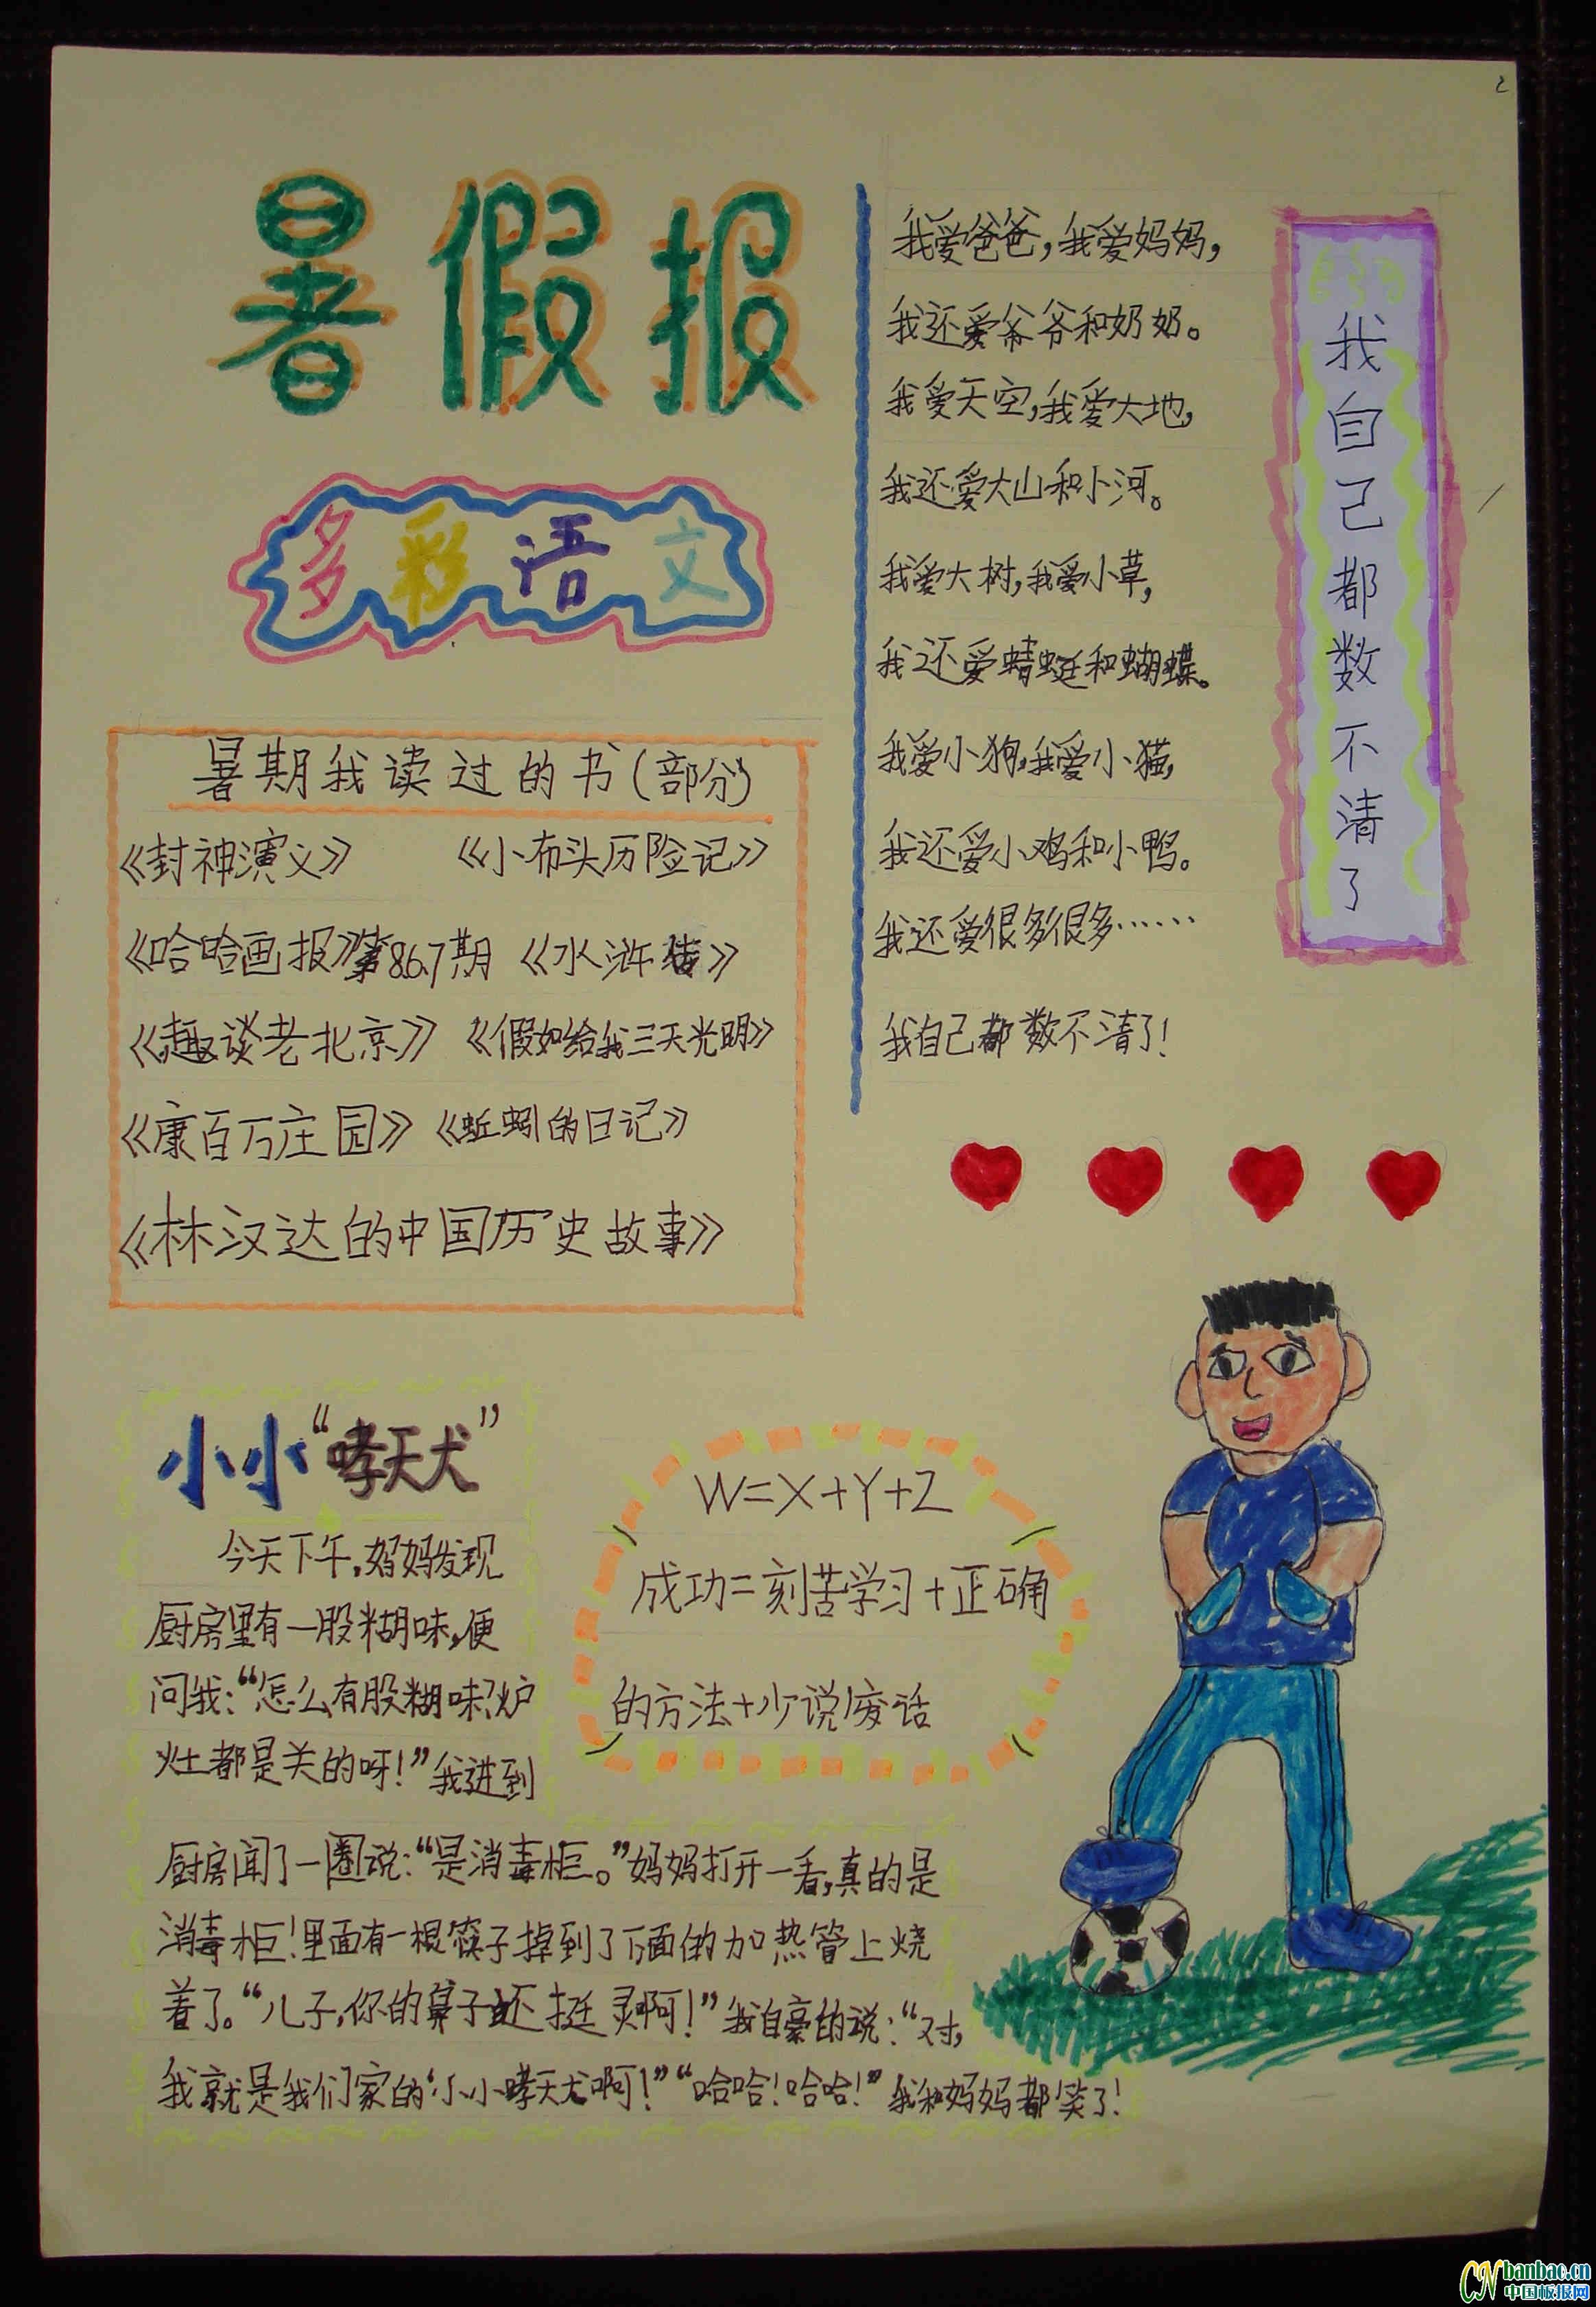 2
暑假报
多彩语文
暑期我读过的书(部分)
《封神演义》 《小布头历险记》
《哈哈画报》第86.7期 《水浒传》
《趣谈老北京》 《假如给我三天光明》
《康百万庄园》 《蚯蚓的日记》
《林汉达的中国历史故事》
我自己都数不清了
我爱爸爸,我爱妈妈,
我还爱爷爷和奶奶。
我爱天空,我爱大地,
我还爱大山和小河。
我爱大树,我爱小草,
我还爱蜻蜓和蝴蝶。
我爱小狗,我爱小猫,
我还爱小鸡和小鸭。
我还爱很多很多……
我自己都数不清了!
小小“哮天犬”
今天下午,妈妈发现
厨房里有一股糊味,便
问我:“怎么有股糊味?炉
灶都是关的呀!”我进到
厨房闻了一圈说:“是消毒柜。”妈妈打开一看,真的是
消毒柜!里面有一根筷子掉到了下面的加热管上烧
着了。“儿子,你的鼻子还挺灵啊!”我自豪的说:“对,
我就是我们家的‘小小哮天犬啊!”“哈哈!哈哈!”我和妈妈都笑了!
W=X+Y+Z
成功=刻苦学习+正确
的方法+少说废话
CN banbao.cn
中国板报网